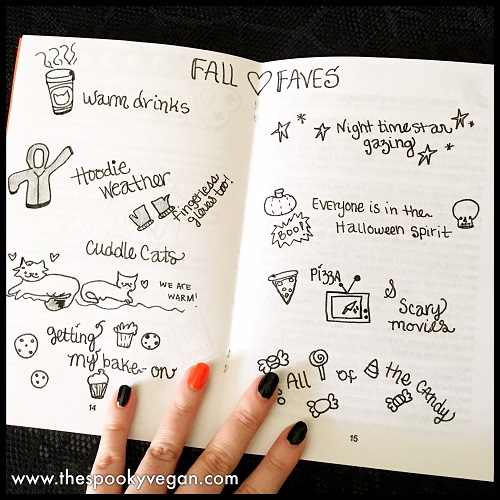 FALL FAVES
warm drinks
Hoodie
Weather
Fingerless
gloves too!
Cuddle Cats
WE ARE
WARM!
getting
my bake-on
14
Night time star
gazing
Everyone is in the
Halloween spirit
BOO!
PIZZA
&
Scary
movies
All of the CANDY
15
www.thespookyvegan.com